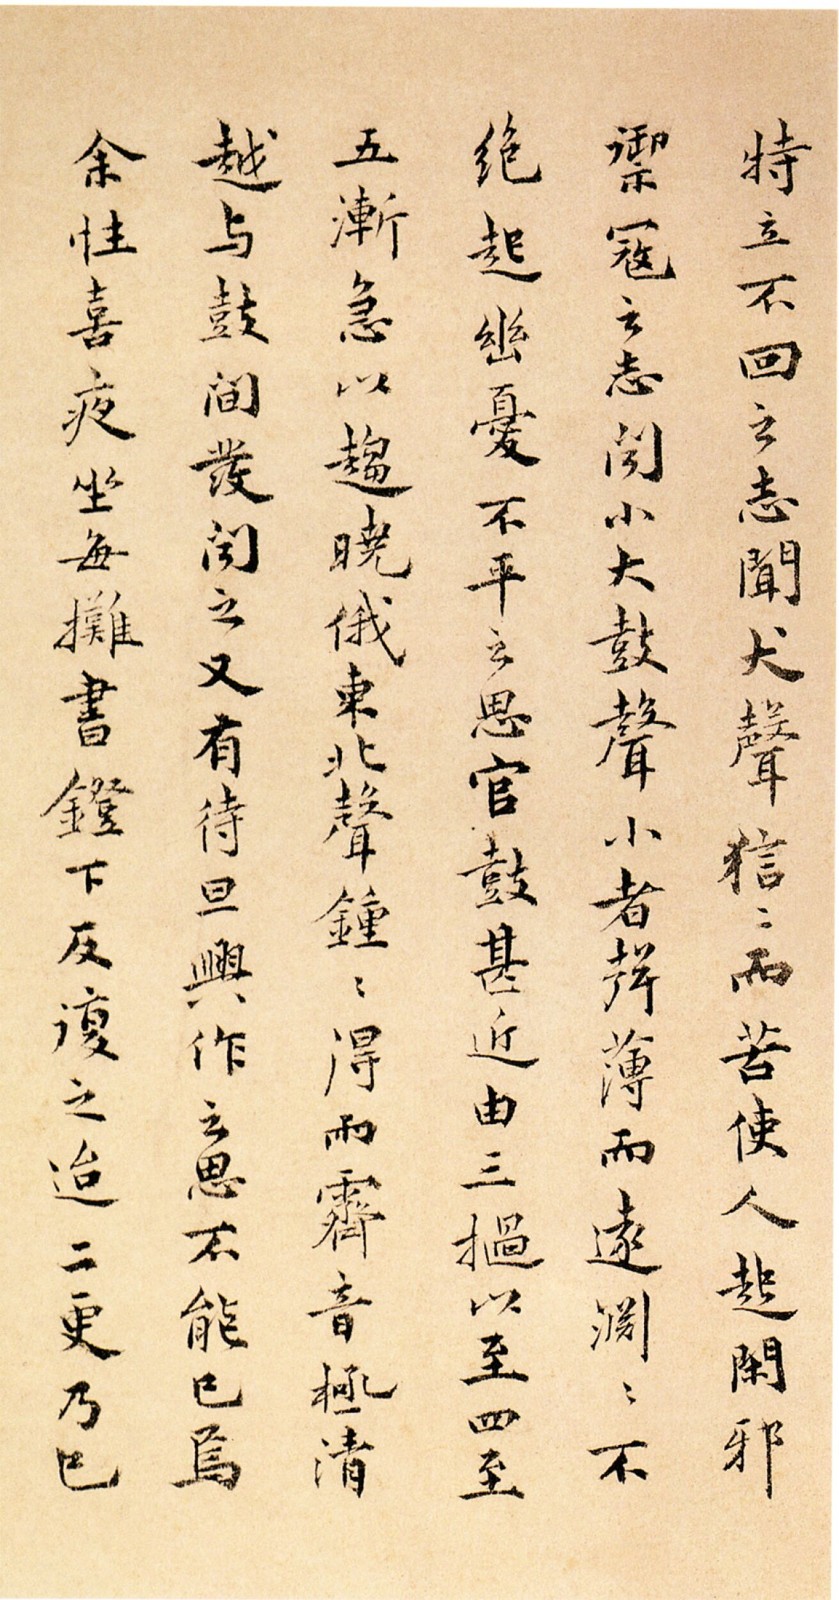 特立不回之志聞犬聲狺〻而苦使人起閑邪
禦寇之志聞小大鼓聲小者聲薄而遠淵〻不
絶起幽憂不平之思官鼓甚近由三撾以至四至
五漸急以趨曉俄東北聲鍾〻得雨霽音極清
越与鼓間發聞之又有待旦興作之思不能已焉
余性喜夜坐每攤書鐙下反復之迨二更乃已